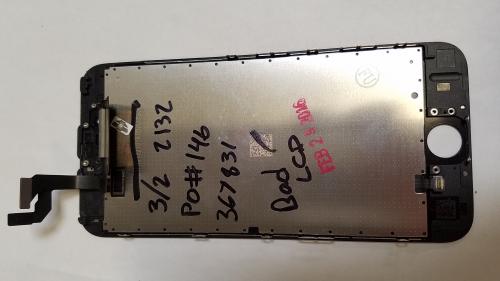 3/2 2132
PO# 146
367831
Bad
LCD
FEB 2 9 2016